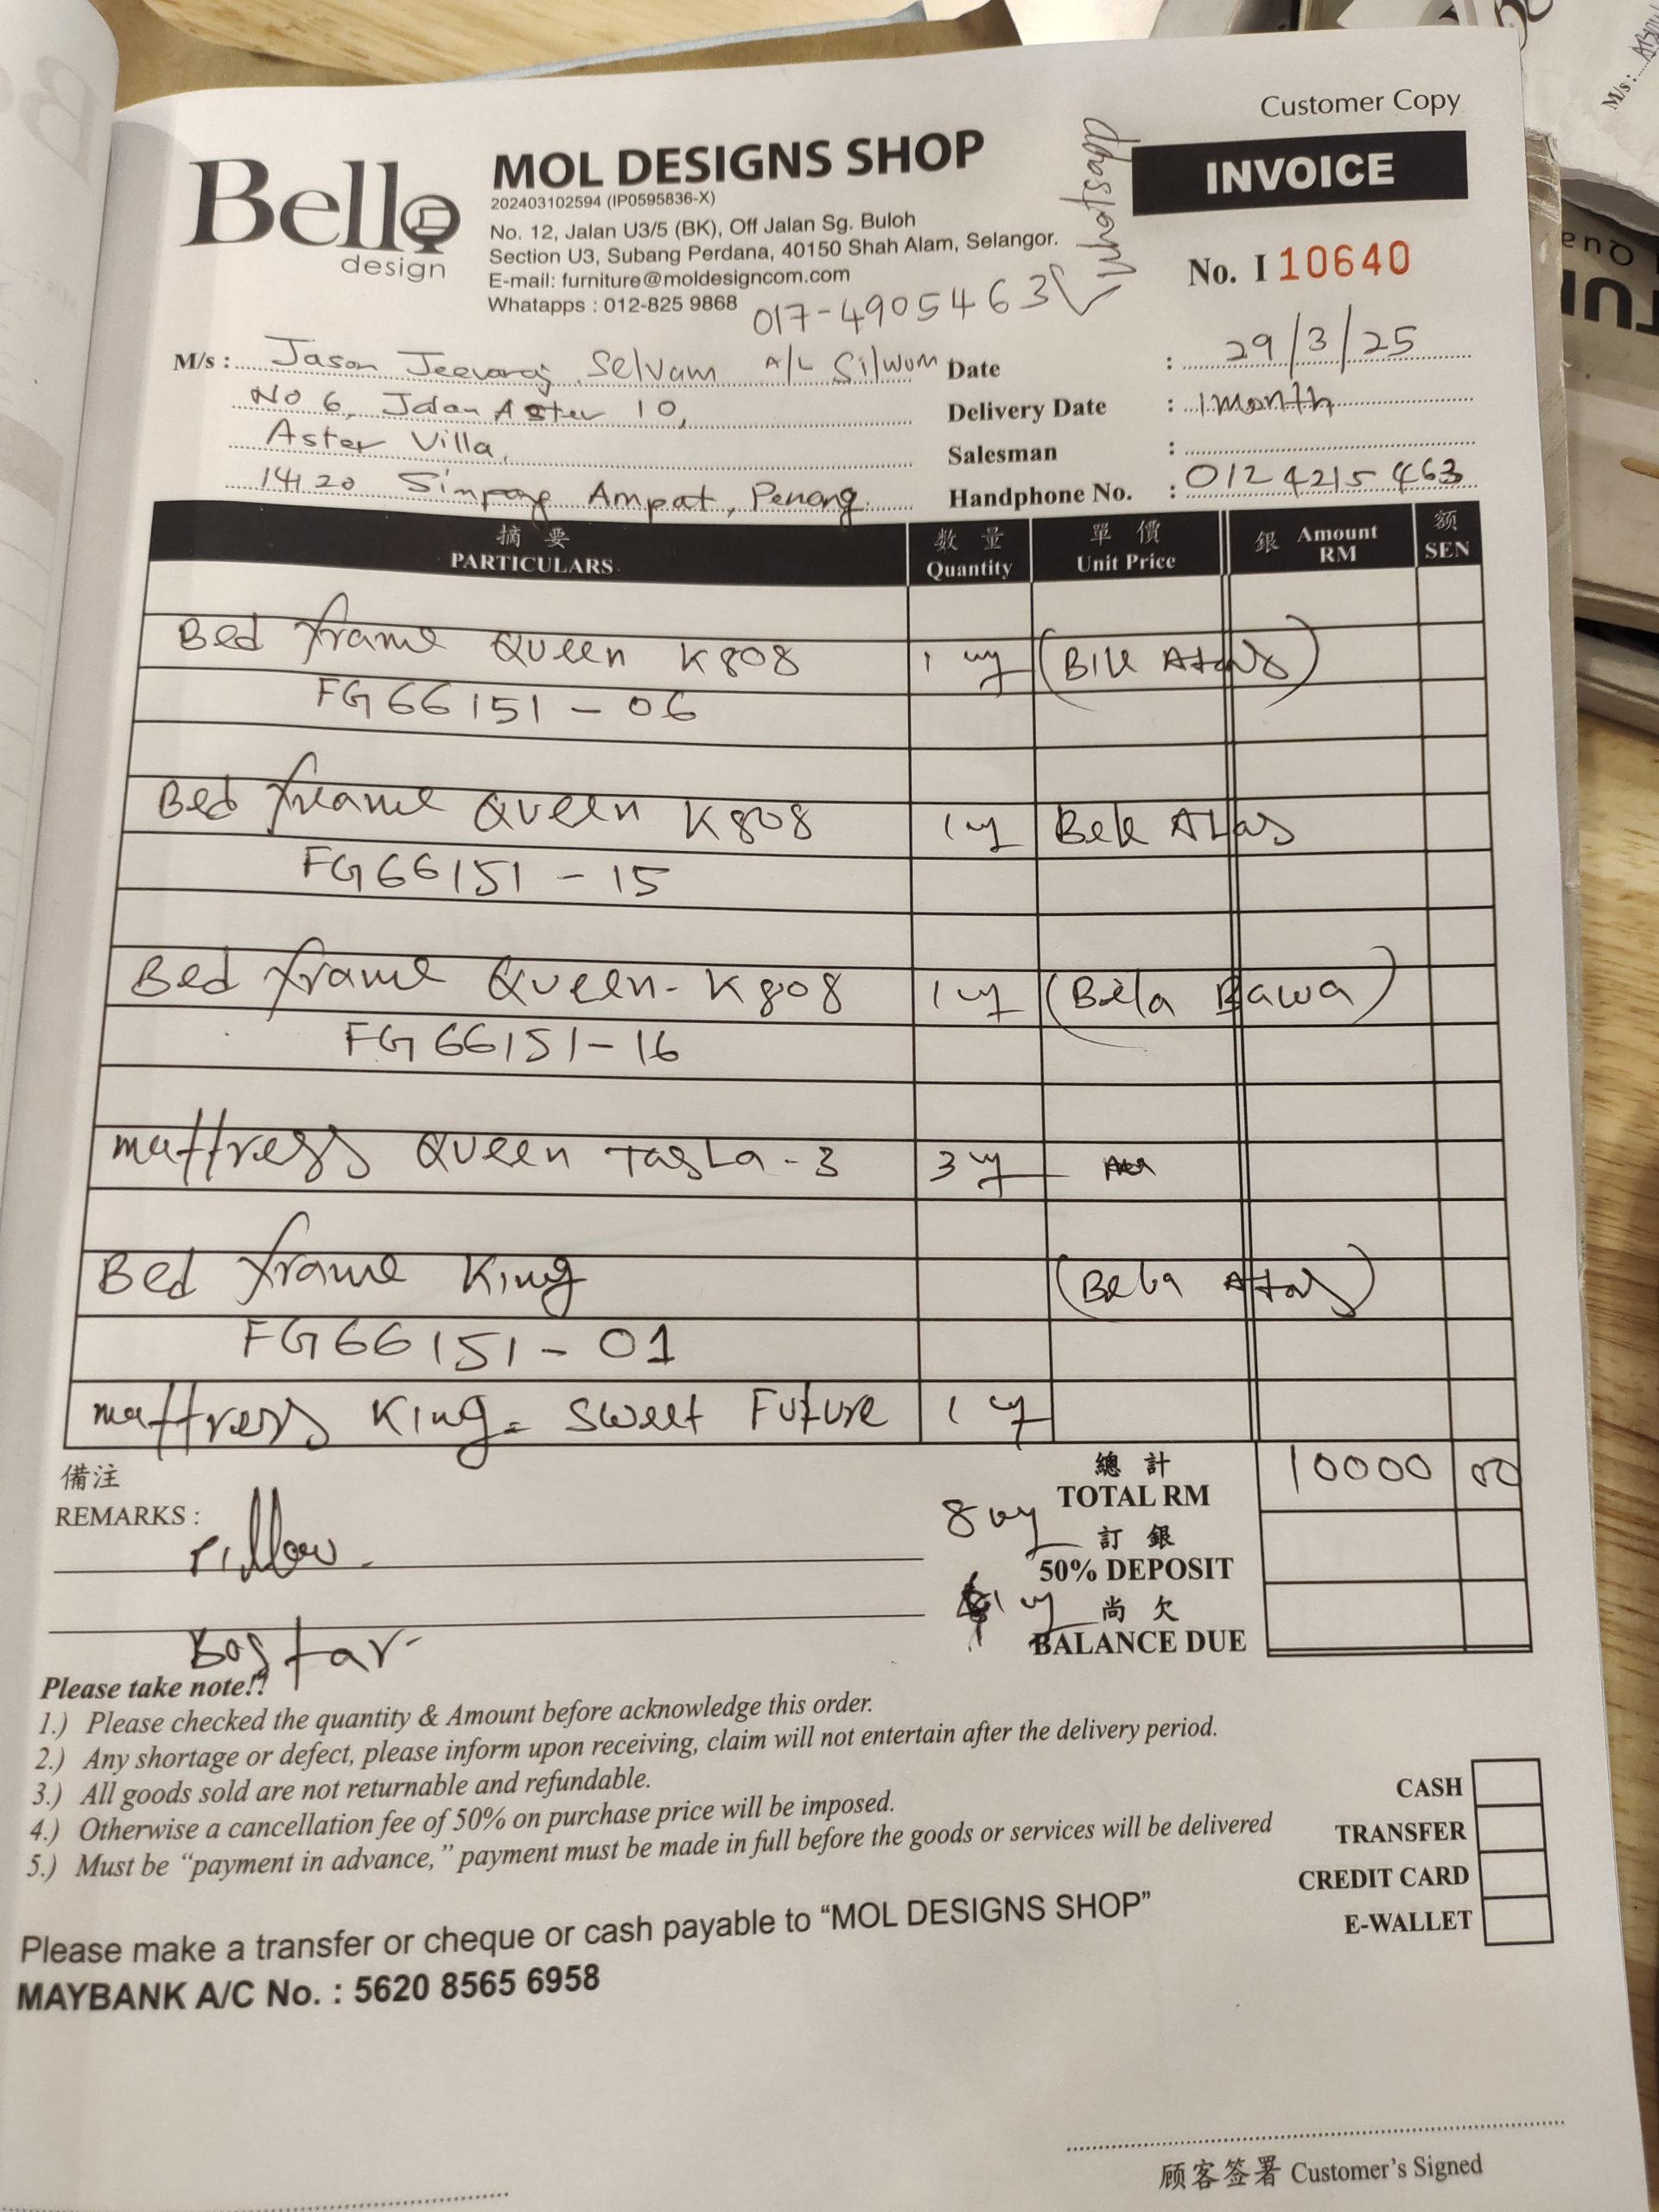 Customer Copy
Bello
design
MOL DESIGNS SHOP
202403102594 (IP0595836-X)
No. 12, Jalan U3/5 (BK), Off Jalan Sg. Buloh
Section U3, Subang Perdana, 40150 Shah Alam, Selangor.
E-mail: furniture@moldesigncom.com
Whatapps : 012-825 9868
017-4905463
Whatsapp
INVOICE
No. I 10640
M/s : Jason Jeevaraj Selvam A/L Silwom
No 6, Jalan Aster 10,
Aster Villa,
14120 Simpang Ampat, Penang.
Date : 29/3/25
Delivery Date : 1 month
Salesman :
Handphone No. : 0124215463
摘要 数量 單價 銀 Amount 额
PARTICULARS. Quantity Unit Price RM SEN
Bed frame Queen K808 1 (Bilk Atas)
FG66151-06
Bed frame Queen K808 1 Bek Atas
FG66151-15
Bed frame Queen-K808 1 (Bela Bawa)
FG66151-16
mattress Queen Tasla-3 3
Bed frame King (Beba Atas)
FG66151-01
mattress King= Sweet Future 1
備注
REMARKS :
Pillow. 8
Bostar 1
總計
TOTAL RM 10000 00
訂銀
50% DEPOSIT
尚欠
BALANCE DUE
Please take note!!
1.) Please checked the quantity & Amount before acknowledge this order.
2.) Any shortage or defect, please inform upon receiving, claim will not entertain after the delivery period.
3.) All goods sold are not returnable and refundable.
4.) Otherwise a cancellation fee of 50% on purchase price will be imposed.
5.) Must be “payment in advance,” payment must be made in full before the goods or services will be delivered
CASH
TRANSFER
CREDIT CARD
E-WALLET
Please make a transfer or cheque or cash payable to “MOL DESIGNS SHOP”
MAYBANK A/C No. : 5620 8565 6958
顾客签署 Customer's Signed